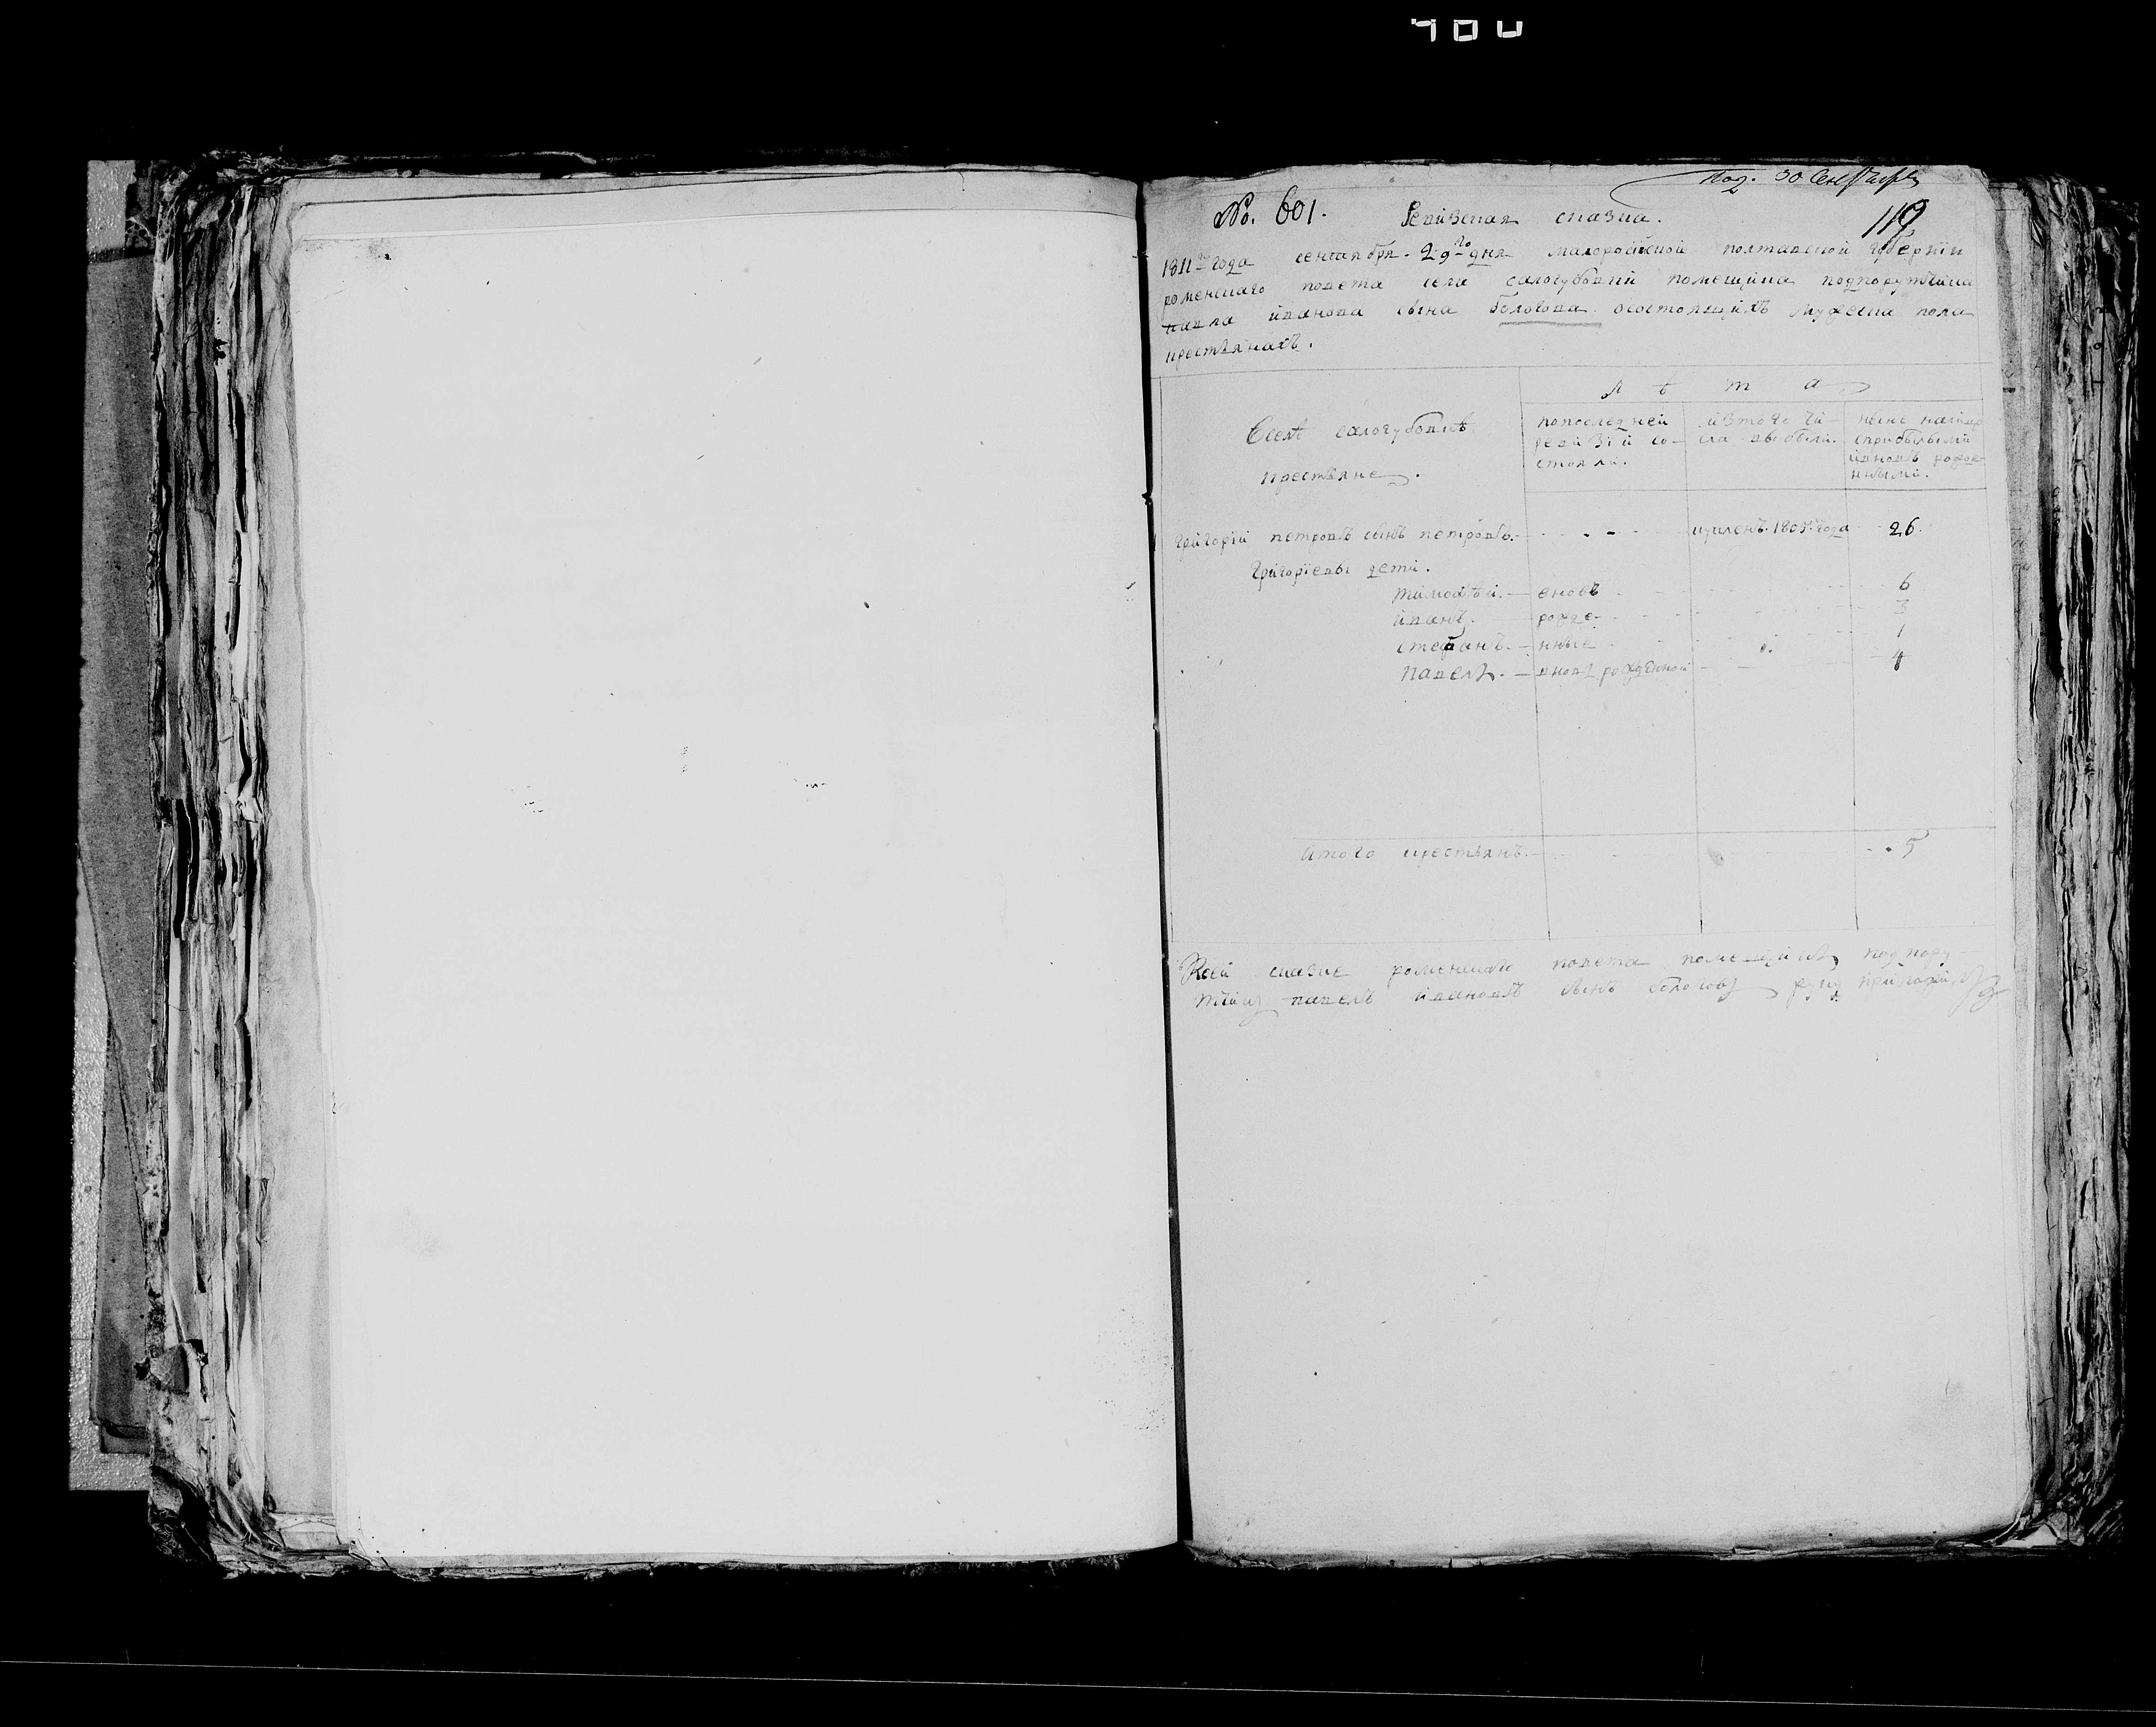 Под. 30 Сентября
No. 601. Ревизская сказка. 119
1811го года сентября 29го дня малоросійской полтавской губерніи
роменскаго повета села салогубовки помещика подпорутчика
павла иванова сына бологова осостоящихъ мужеска пола
крестьянахъ.
Лѣта
Вселѣ салогубовкѣ
крестьяне.
попоследней
ревизіи со-
стояли.
изтого чи-
сла выбыли.
ныне налицо
сприбылыми
ивновь рожде-
нными.
григорій петровъ сынъ петровъ. купленъ 1805. года 26.
Григоріевы дети.
тимофѣй. вновь 6
иванъ. рожде- 3
стефанъ. нные 1
павелъ. вновь рожденной 4
итого крестьянъ. 5
Ксей сказке роменскаго повета помещикъ подпору-
тчикъ павелъ ивановъ сынъ бологовъ руку приложилъ